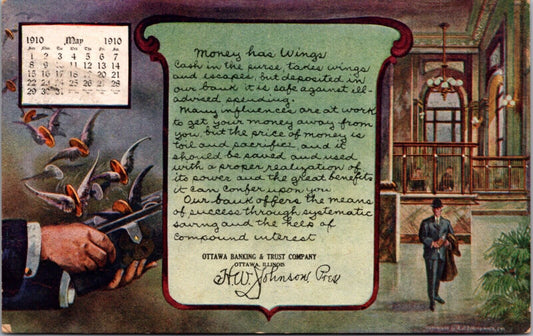 1910 May 1910
Sun Mon Tue Wed Thu Fri Sat
1 2 3 4 5 6 7
8 9 10 11 12 13 14
15 16 17 18 19 20 21
22 23 24 25 26 27 28
29 30 31
Money has Wings
Cash in the purse, takes wings
and escapes, but deposited in
our bank it is safe against ill-
advised spending.
Many influences are at work
to get your money away from
you, but the price of money is
toil and sacrifice, and it
should be saved and used
with a proper realization of
its power and the great benefits
it can confer upon you.
Our bank offers the means
of success through systematic
saving and the help of
compound interest
OTTAWA BANKING & TRUST COMPANY
OTTAWA, ILLINOIS
H.W. Johnson, Pres